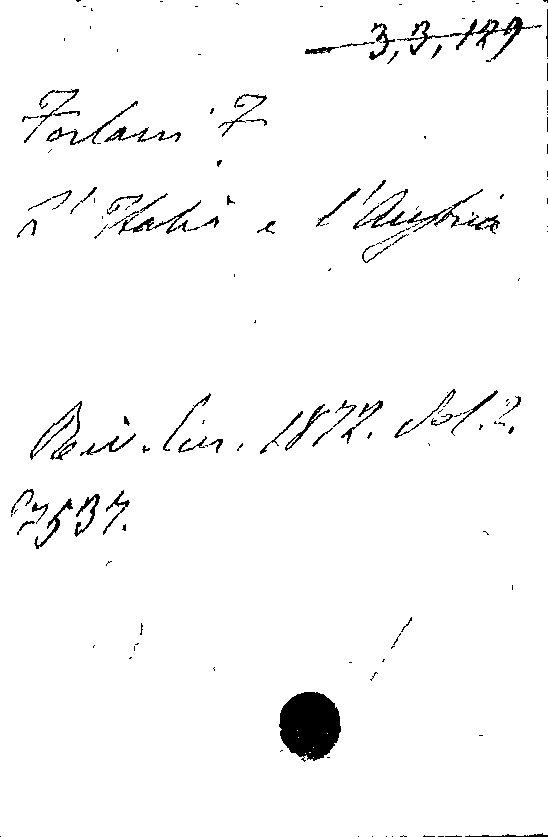 3,3,129
Forlani F
L'Italia e l'Austria
Riv. Eur. 1872. Vol. 2.
p 537.